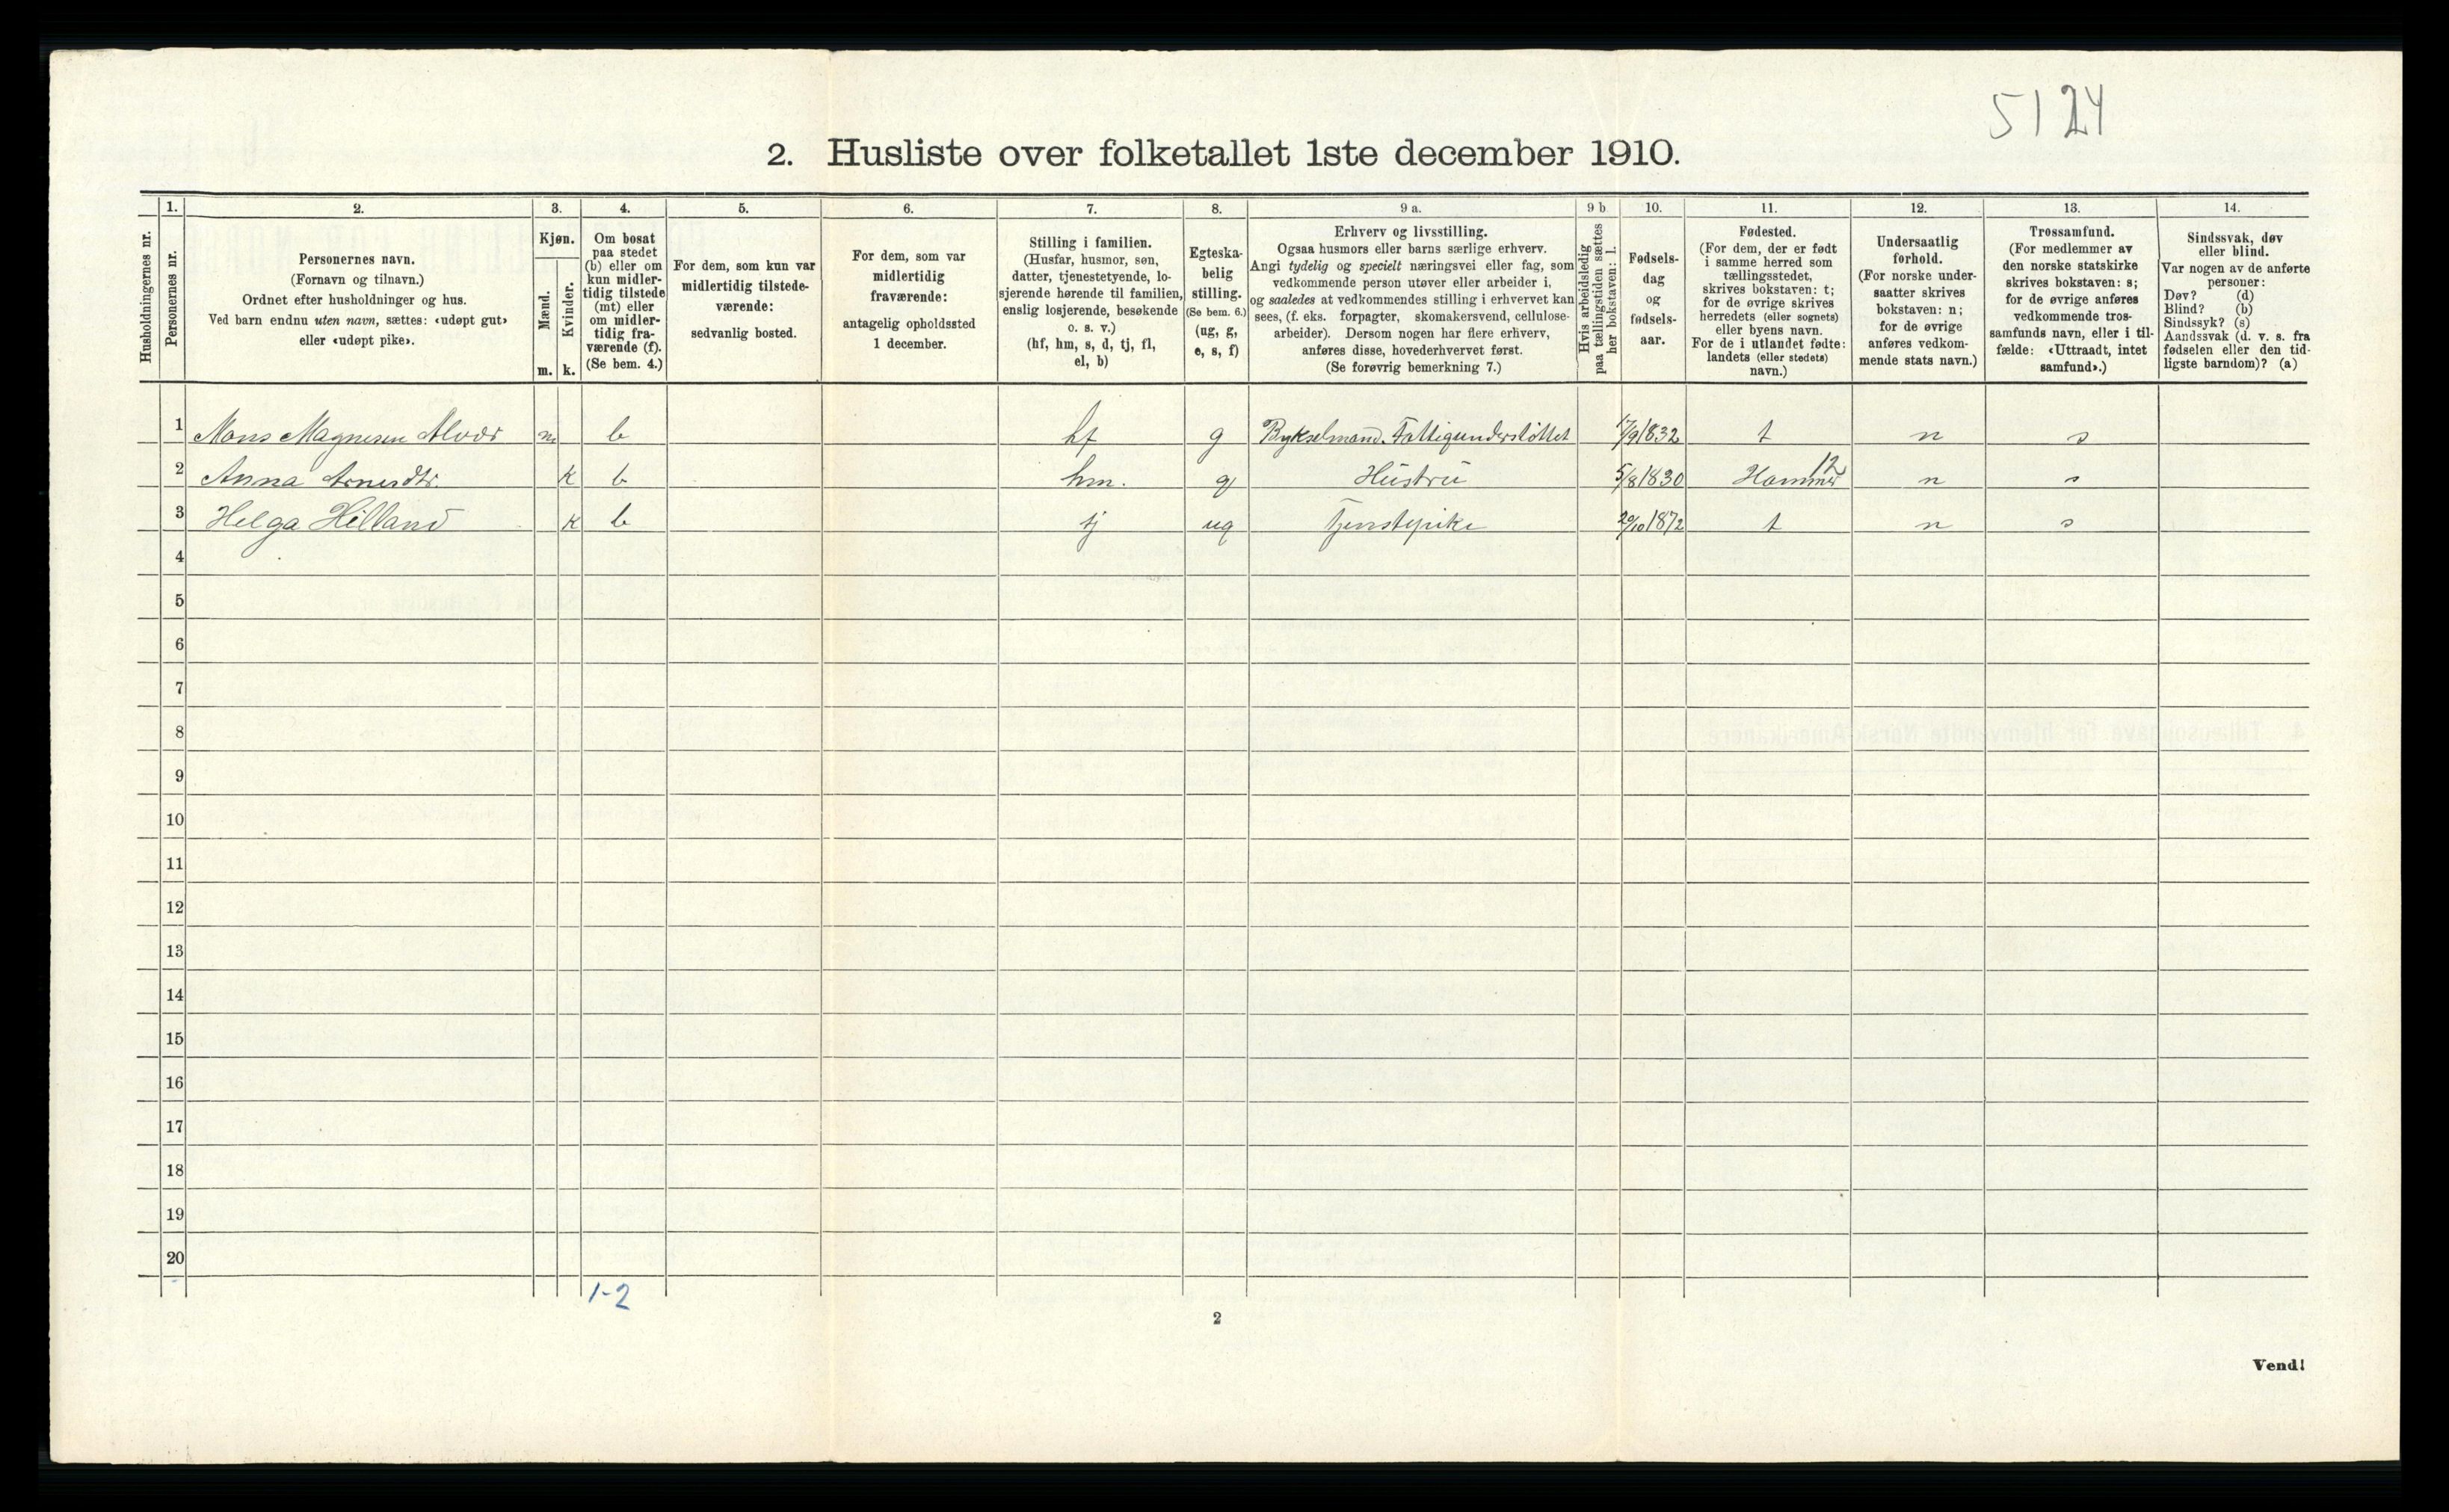 5124
2. Husliste over folketallet 1ste december 1910.
Husholdningernes nr.
1.
Personernes nr.
2.
Personernes navn.
(Fornavn og tilnavn.)
Ordnet efter husholdninger og hus.
Ved barn endnu uten navn, sættes: «udøpt gut»
eller «udøpt pike».
3.
Kjøn.
Mænd.
Kvinder.
m. k.
4.
Om bosat
paa stedet
(b) eller om
kun midler-
tidig tilstede
(mt) eller
om midler-
tidig fra-
værende (f).
(Se bem. 4.)
5.
For dem, som kun var
midlertidig tilstede-
værende:
sedvanlig bosted.
6.
For dem, som var
midlertidig
fraværende:
antagelig opholdssted
1 december.
7.
Stilling i familien.
(Husfar, husmor, søn,
datter, tjenestetyende, lo-
sjerende hørende til familien,
enslig losjerende, besøkende
o. s. v.)
(hf, hm, s, d, tj, fl,
el, b)
8.
Egteska-
belig
stilling.
(Se bem. 6.)
(ug, g,
e, s, f)
9 a.
Erhverv og livsstilling.
Ogsaa husmors eller barns særlige erhverv.
Angi tydelig og specielt næringsvei eller fag, som
vedkommende person utøver eller arbeider i,
og saaledes at vedkommendes stilling i erhvervet kan
sees, (f. eks. forpagter, skomakersvend, cellulose-
arbeider). Dersom nogen har flere erhverv,
anføres disse, hovederhvervet først.
(Se forøvrig bemerkning 7.)
9 b
Hvis arbeidsledig
paa tællingstiden sættes
her bokstaven: l.
10.
Fødsels-
dag
og
fødsels-
aar.
11.
Fødested.
(For dem, der er født
i samme herred som
tællingsstedet,
skrives bokstaven: t;
for de øvrige skrives
herredets (eller sognets)
eller byens navn.
For de i utlandet fødte:
landets (eller stedets)
navn.)
12.
Undersaatlig
forhold.
(For norske under-
saatter skrives
bokstaven: n;
for de øvrige
anføres vedkom-
mende stats navn.)
13.
Trossamfund.
(For medlemmer av
den norske statskirke
skrives bokstaven: s;
for de øvrige anføres
vedkommende tros-
samfunds navn, eller i til-
fælde: «Uttraadt, intet
samfund».)
14.
Sindssvak, døv
eller blind.
Var nogen av de anførte
personer:
Døv? (d)
Blind? (b)
Sindssyk? (s)
Aandssvak (d. v. s. fra
fødselen eller den tid-
ligste barndom)? (a)
1 Mons Magnesen m b hf g Bykselmand. Fattigunderstöttet 17/9 1832 t n s
12
2 Anna Arnesdtr. k b hm. g Hustru 5/8 1830 Hammer n s
3 Helga Hilland k b tj ug Tjenstepike 20/10 1872 t n s
4
5
6
7
8
9
10
11
12
13
14
15
16
17
18
19
20
1-2
2
Vend!